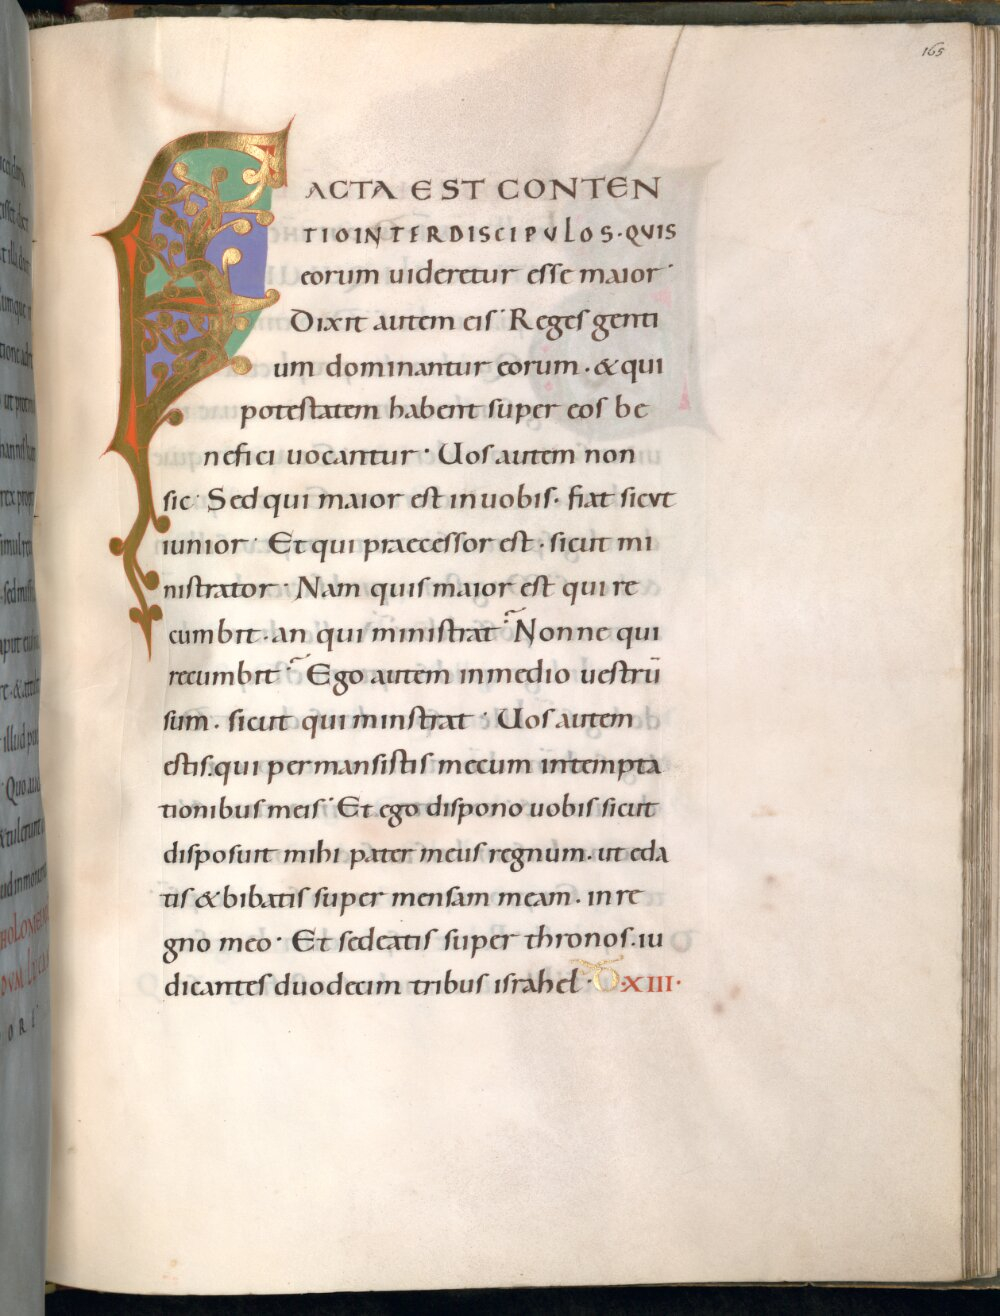 165
FACTA EST CONTEN
TIO INTER DISCIPULOS·QVIS
eorum uideretur esse maior·
Dixit autem eis· Reges genti
um dominantur eorum·&qui
potestatem habent super eos be
nefici uocantur· Uos autem non
sic· Sed qui maior est in uobis· fiat sicvt
iunior· Et qui praecessor est· sicut mi
nistrator· Nam quis maior est qui re
cumbit· an qui ministrat· Nonne qui
recumbit· Ego autem in medio uestrū
sum· sicut qui minstrat· Uos autem
estis·qui permansistis mecum in tempta
tionibus meis· Et ego dispono uobis sicut
disposuit mihi pater meus regnum· ut eda
tis & bibatis super mensam meam· in re
gno meo· Et sedeatis super thronos·iu
dicantes duodecim tribus israhel· D·XIII·